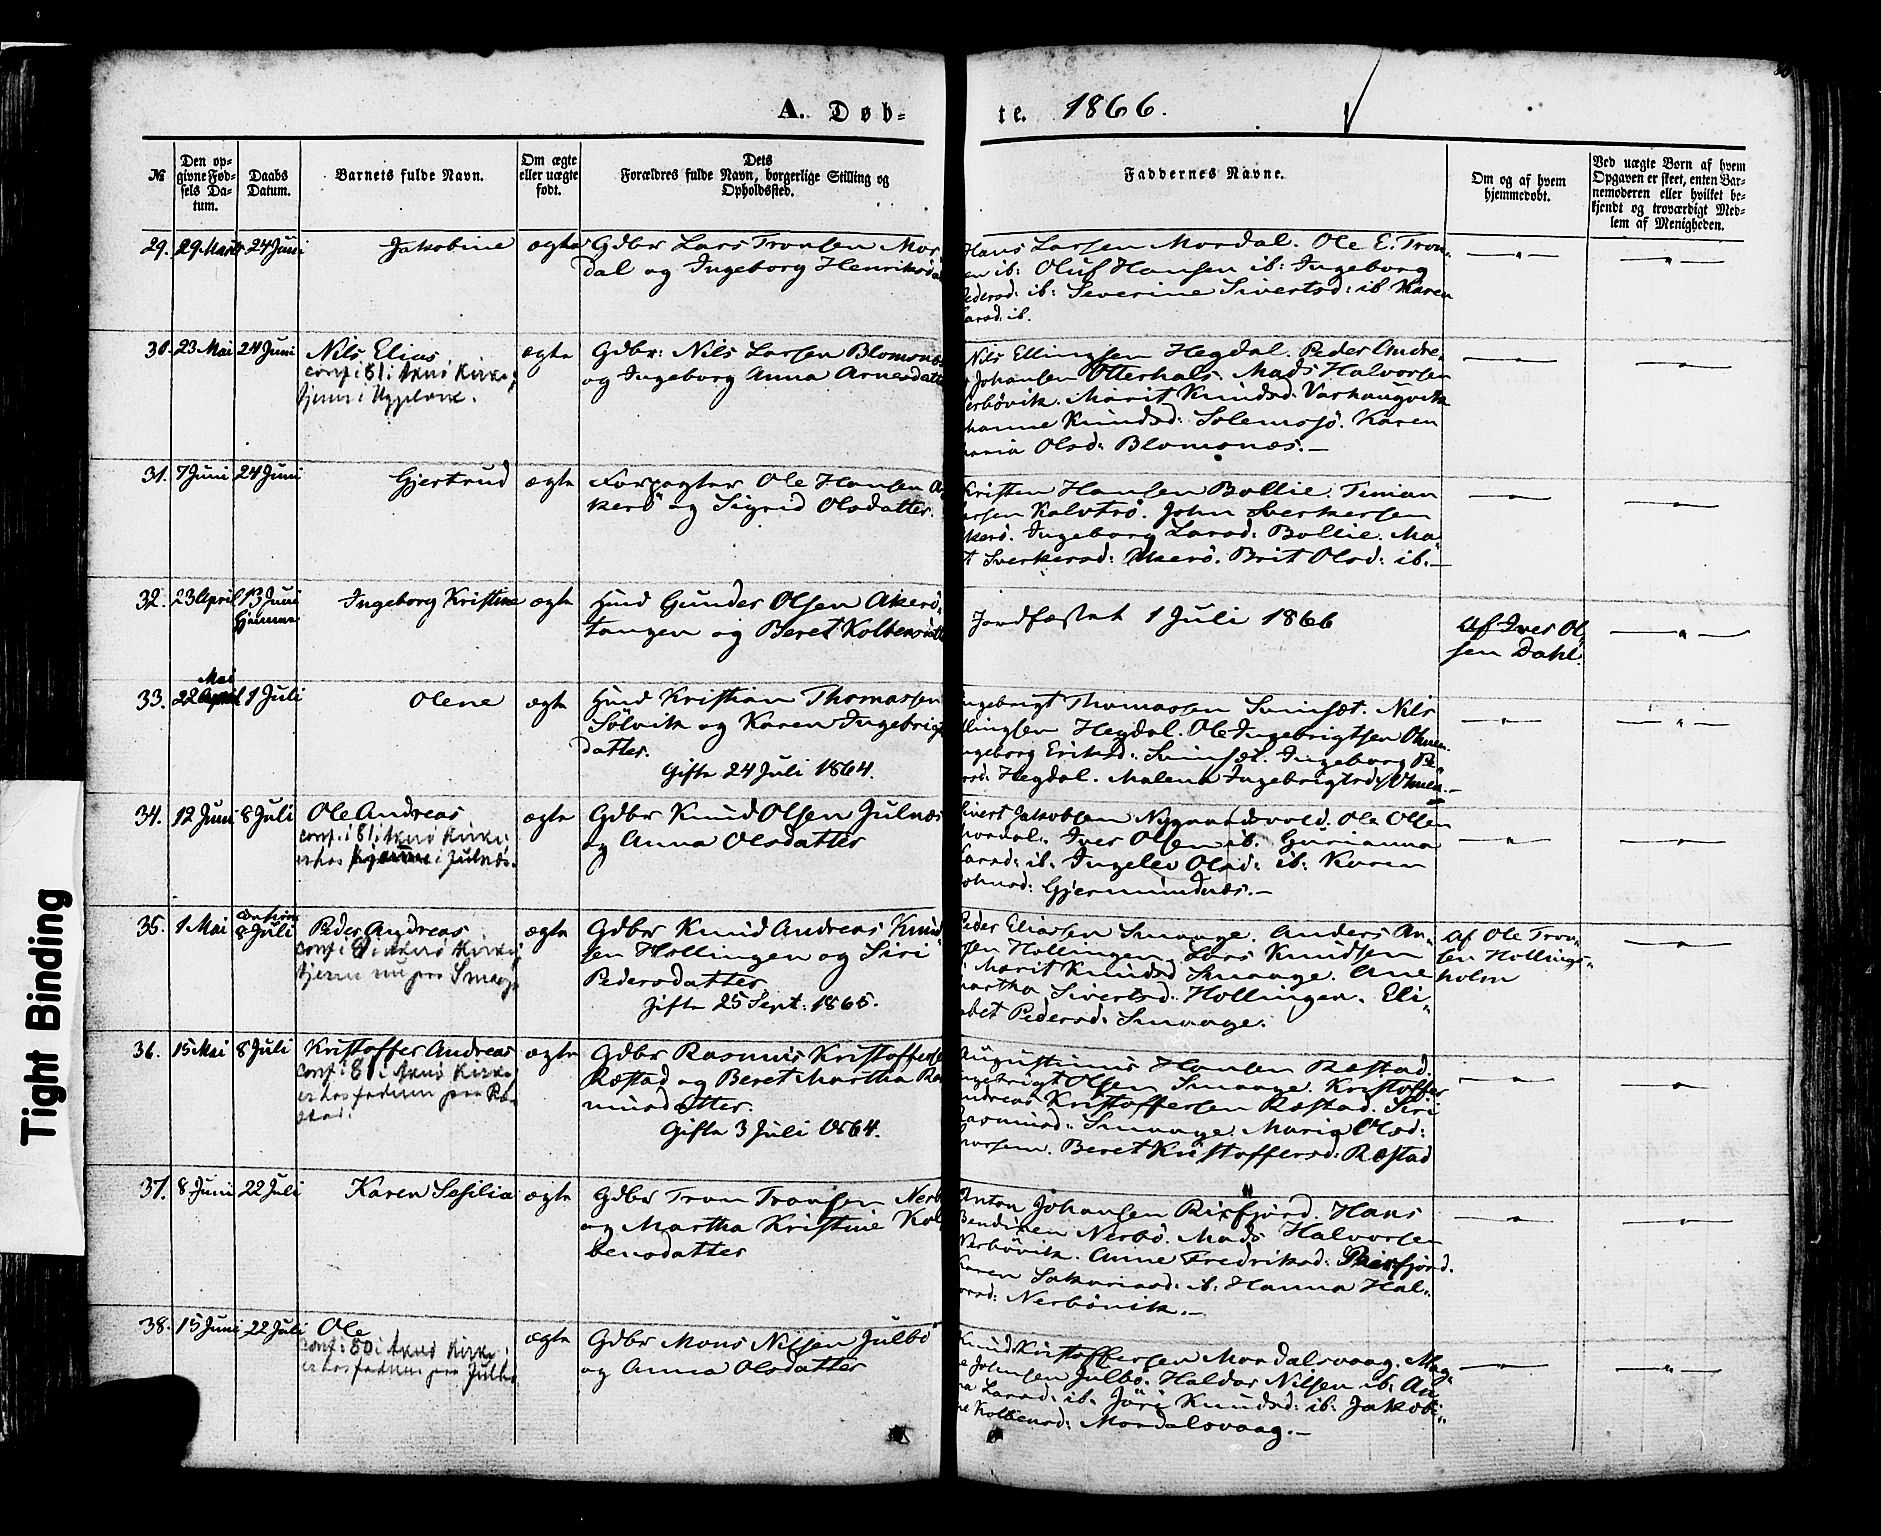 A. Døb=
te. 1866.
№
Den op-
givne Fød-
sels Da-
tum.
Daabs
Datum.
Barnets fulde Navn.
Om ægte
eller uægte
født.
Dets
Forældres fulde Navn, borgerlige Stilling og
Opholdssted.
Faddernes Navne.
Om og af hvem
hjemmedøbt.
Ved uægte Børn af hvem
Opgaven er skeet, enten Bar-
nemoderen eller hvilket be-
kjendt og troværdigt Med-
lem af Menigheden.
29. 29 Marts 24 Juni Jakobine ægte Gdbr Lars Tronsen Mor
dal og Ingeborg Henriksd
Hans Larsen Mordal. Ole E. Tron-
en ib: Oluf Hansen ib: Ingeborg
Pedersd: ib: Severine Sivertsd: ib Karen
Larsd: ib.
30. 23 Mai 24 Juni Nils Elias ægte Gdbr: Nils Larsen Blomsnæs
conf: i 81 i Akrø Kirke;
og Ingeborg Anna Arnesdatte
hjemme i
Nils Ellingsen Hegdal. Peder Andre-
s Johansen Otterhals. Mads Halvorsen
Nerbøvik. Marit Knudsd: Varhaugvik
hanne Knudsd: Solemssjø. Karen
Maria Olsd: Blomsnæs.—
31. 7 Juni 24 Juni Gjertrud ægte Forpagter Ole Hansen A
kerø og Sigrid Olsdatter.
Kristen Hansen Bollie. Timian
ersen Kalvtrø. John Sverkersen
Akerø. Ingeborg Larsd: Bollie. Ma-
t Sverkersd: Akerø. Brit Olsd: ib.—
32. 23 April 13 Juni Ingeborg Kristine ægte Hmd Gunder Olsen Akerø-
hjemme
tangen og Beret Kolbensdatte
Jordfæstet 1 Juli 1866
Af Iver Ol-
sen Dahl.
Mai
33. 22 April 1 Juli Olene ægte Hmd Kristian Thomassen
Sølvik og Karen Ingebrigt
datter.
Gifte 24 Juli 1864.
Ingebrigt Thomassen Svinsæt. Nils
Ellingsen Hegdal. Ole Ingebrigtsen
Ingeborg Eriksd: Svinsæt. Ingeborg Pe-
ersd: Hegdal. Malena Ingebrigtsd:
34. 12 Juni 8 Juli Ole Andreas ægte Gdbr Knud Olsen Julnæs
conf: i 81 i Akrø Kirke;
og Anna Olsdatter
er hos hjemme i Julnæs.
Sivert Jakobsen Nygaardsvold. Ole Olsen
Mordal. Iver Olsen ib. Gurianna
Larsd: ib. Ingelev Olsd: ib: Karen
Johnsd: Gjermundnæs.—
35. 1 Mai 8 Juli Peder Andreas ægte Gdbr Knud Andreas Knud-
conf: i 81 i Akrø Kirke;
sen Hollingen og Siri
hjemme nu paa Smaage
Pedersdatter
Gifte 25 Sept: 1865.
Peder Eliassen Smaage. Anders An-
sen Hollingen. Lars Knudsen
Marit Knudsd Smaage. Ane
Martha Sivertsd: Hollingen. Eli-
abet Pedersd: Smaage.
Af Ole Tron-
sen Hollings-
holm
36. 15 Mai 8 Juli Kristoffer Andreas ægte Gdbr Rasmus Kristoffersen
conf: i 81 i Akrø Kirke
Røstad og Beret Martha Ra
er hos faderen paa Rø-
musdatter.
stad.
Gifte 3 Juli 1864.
Augustinus Hansen Røstad.
Ingebrigt Olsen Smaage. Kristoffer
Andreas Kristoffersen Røstad. Siri
Rasmusd: Smaage. Maria Olsd:
Beret Kristoffersd: Røstad
37. 8 Juni 22 Juli Karen Sesilia ægte Gdbr Tron Tronsen Nerb
og Martha Kristine Kol
bensdatter
Anton Johansen Rixfjord. Hans
Bendixen Nerbø. Mads Halvorsen
Nerbøvik. Anne Fredriksd: Rixfjord.
Karen Sakariasd: ib: Hanna Hal-
orsd: Nerbøvik.—
38. 15 Juni 22 Juli Ole ægte Gdbr Mons Nilsen Julbø
conf: i 80 i Akrø Kirke;
og Anna Olsdatter
er hos faderen paa Julbø
Knud Kristoffersen Mordalsvaag. Mag-
e Johnsen Julbø. Haldor Nilsen ib. An-
na Larsd: ib. Jøri Knudsd: ib: Jakobi-
ne Kolbensd: Mordalsvaag.—
Tight Binding